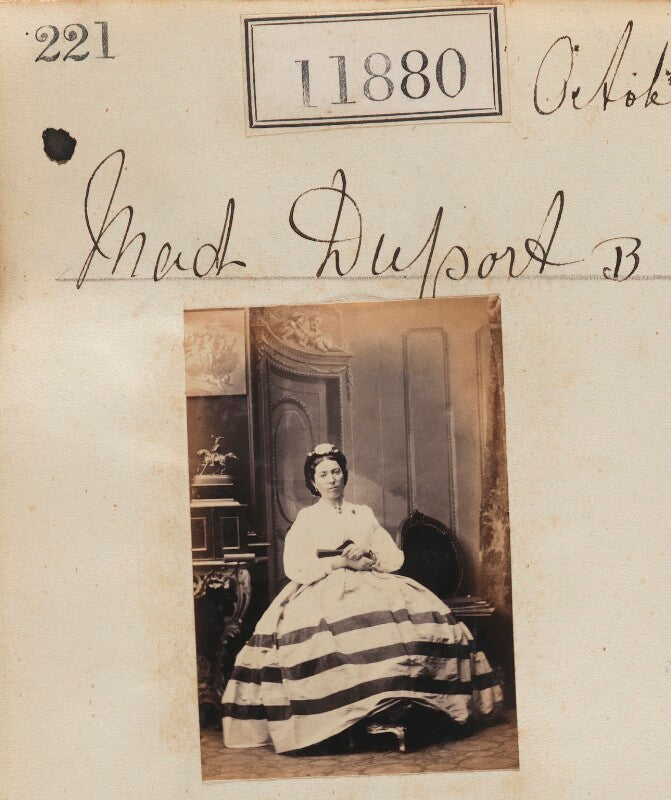 221
11880
Octob
Mad Duport B